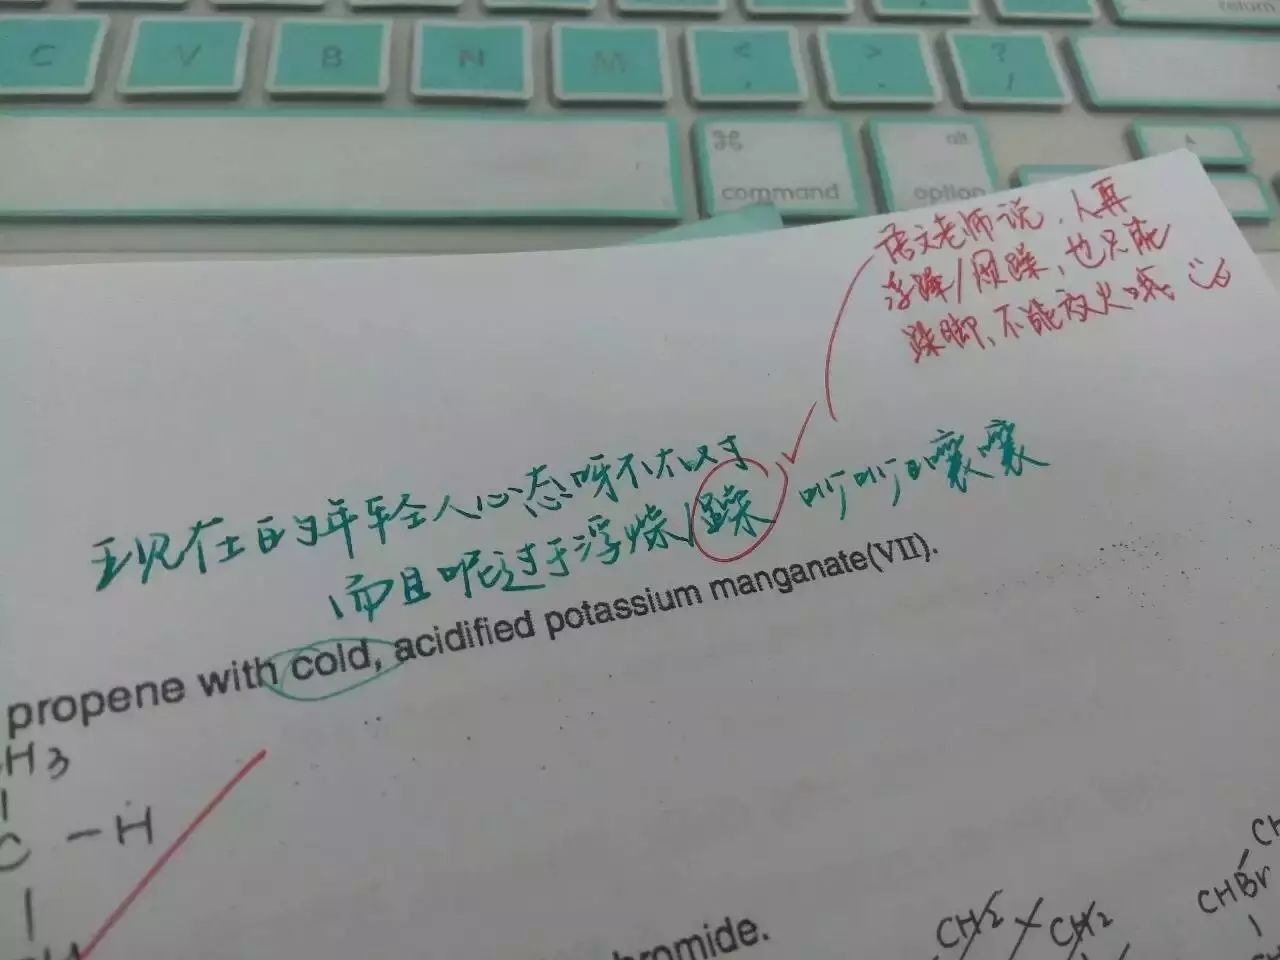 return
C V B N M < , > . ? /
⌘ alt
command option
语文老师说，人再
浮躁/风躁，也只能
跺脚，不能放火哦
现在的年轻人心态呀不太对
而且呢过于浮燥/躁 叽叽囔囔
propene with cold, acidified potassium manganate(VII).
H3
C - H
CH2 CH2
CHBr
romide.